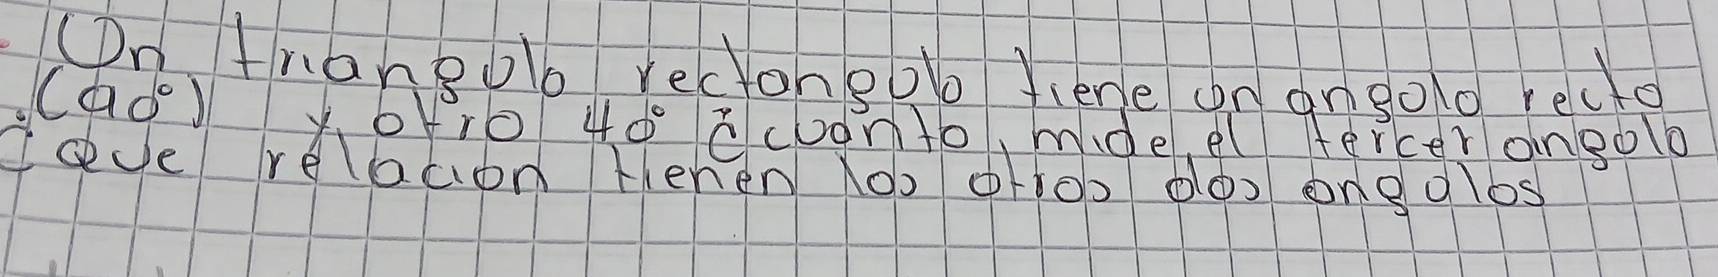 Un triangulo rectangulo tiene un angulo recto
(90°) y otro 40° ¿cuanto mide el tercer angulo
¿que relacion tienen los otros dos angulos